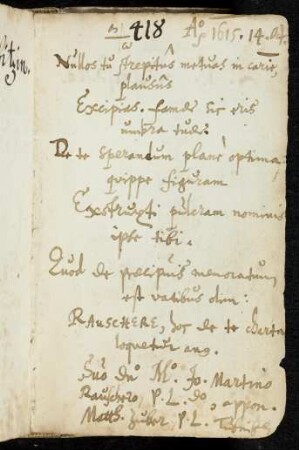 418 Aº 1615. 14.
Nullos tu strepitûs metuas in carie,
plausûs
Excipias. famae sic eris
umbra tuae.
De te sperandum planè optima,
quippe figuram
Exstruxti pulcram nominis
ipse tibi.
Quod de praecipuis memoratum
est vatibus olim:
RAUSCHERE, hoc de te charta
loquetur anus.
Suo dnº Mº. Jo. Martino
Rauschero, P. L. appon.
Matth. Zuber, P. L.